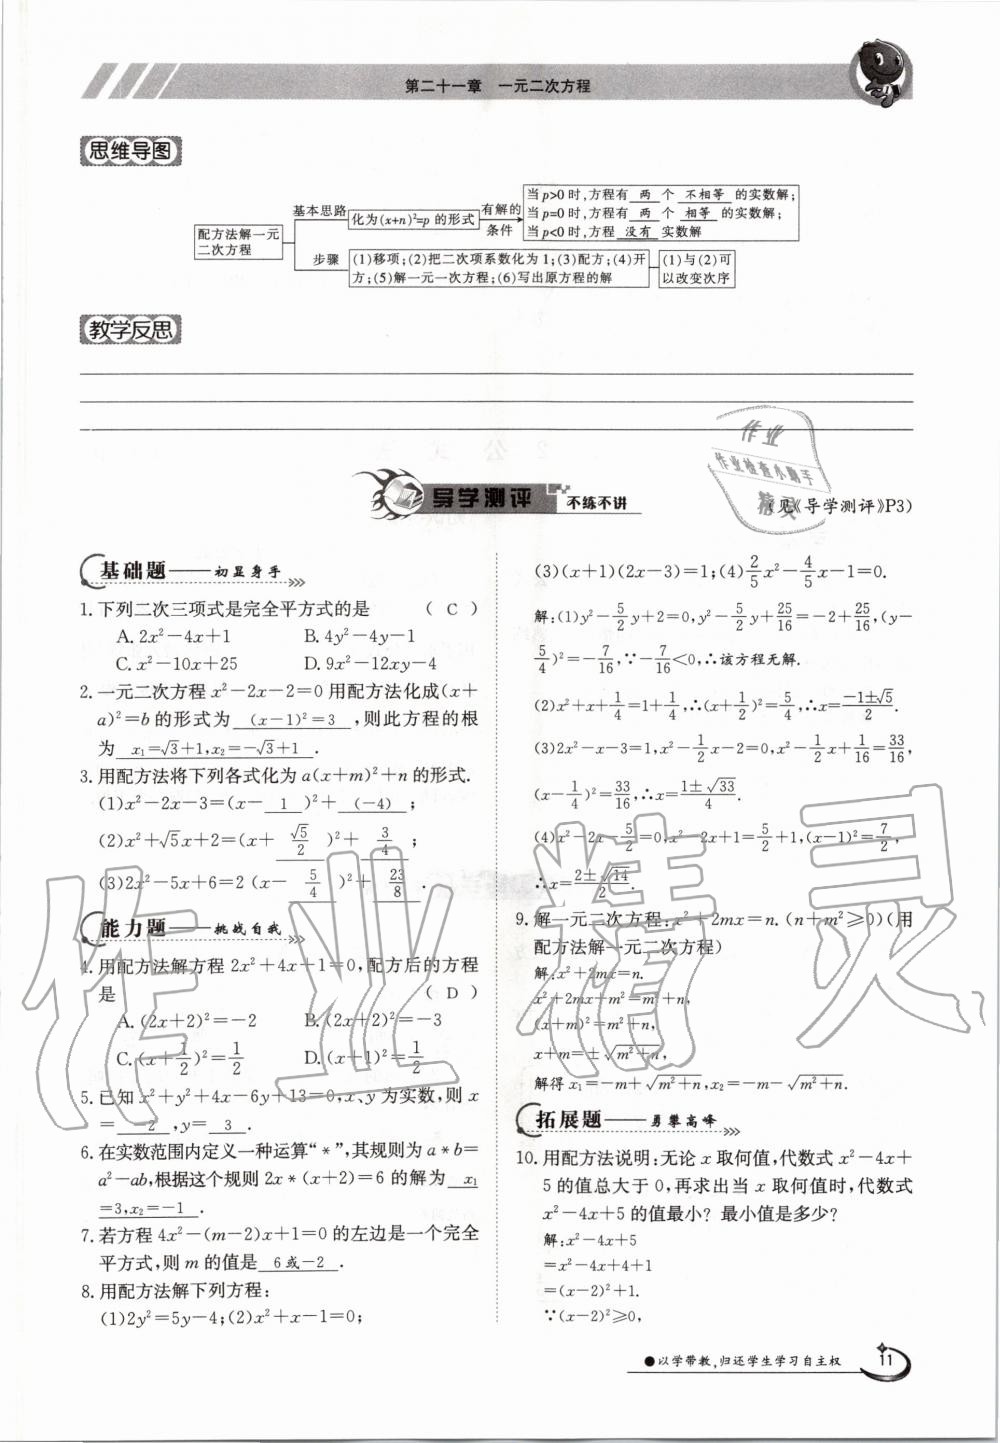 第二十一章　一元二次方程
思维导图
配方法解一元二次方程
基本思路
化为(x+n)²=p 的形式
有解的条件
当 p>0 时,方程有 两 个 不相等 的实数解;
当 p=0 时,方程有 两 个 相等 的实数解;
当 p<0 时,方程 没有 实数解
步骤
(1)移项;(2)把二次项系数化为 1;(3)配方;(4)开
方;(5)解一元一次方程;(6)写出原方程的解
(1)与(2)可
以改变次序
教学反思
导学测评 不练不讲
(见《导学测评》P3)
作业
作业检查小助手
精灵
基础题——初显身手
1.下列二次三项式是完全平方式的是 ( C )
A.2x²-4x+1 B.4y²-4y-1
C.x²-10x+25 D.9x²-12xy-4
2.一元二次方程 x²-2x-2=0 用配方法化成(x+
a)²=b 的形式为 (x-1)²=3 ,则此方程的根
为 x₁=√3+1,x₂=-√3+1 .
3.用配方法将下列各式化为 a(x+m)²+n 的形式.
(1)x²-2x-3=(x- 1 )²+ (-4) ;
(2)x²+√5x+2=(x+ √5/2 )²+ 3/4 ;
(3)2x²-5x+6=2 (x- 5/4 )²+ 23/8 .
能力题——挑战自我
4.用配方法解方程 2x²+4x+1=0,配方后的方程
是 ( D )
A.(2x+2)²=-2 B.(2x+2)²=-3
C.(x+1/2)²=1/2 D.(x+1)²=1/2
5.已知 x²+y²+4x-6y+13=0,x、y 为实数,则 x
= -2 ,y= 3 .
6.在实数范围内定义一种运算“*”,其规则为 a*b=
a²-ab,根据这个规则 2x*(x+2)=6 的解为 x₁
=3,x₂=-1 .
7.若方程 4x²-(m-2)x+1=0 的左边是一个完全
平方式,则 m 的值是 6 或-2 .
8.用配方法解下列方程:
(1)2y²=5y-4;(2)x²+x-1=0;
(3)(x+1)(2x-3)=1;(4)2/5x²-4/5x-1=0.
解:(1)y²-5/2y+2=0,y²-5/2y+25/16=-2+25/16,(y-
5/4)²=-7/16,∵-7/16<0,∴该方程无解.
(2)x²+x+1/4=1+1/4,∴(x+1/2)²=5/4,∴x=(-1±√5)/2.
(3)2x²-x-3=1,x²-1/2x-2=0,x²-1/2x+1/16=33/16,
(x-1/4)²=33/16,∴x=(1±√33)/4.
(4)x²-2x-5/2=0,x²-2x+1=5/2+1,(x-1)²=7/2,
∴x=(2±√14)/2.
9.解一元二次方程:x²+2mx=n.(n+m²≥0)(用
配方法解一元二次方程)
解:x²+2mx=n.
x²+2mx+m²=m²+n,
(x+m)²=m²+n,
x+m=±√(m²+n),
解得 x₁=-m+√(m²+n),x₂=-m-√(m²+n).
拓展题——勇攀高峰
10.用配方法说明:无论 x 取何值,代数式 x²-4x+
5 的值总大于 0,再求出当 x 取何值时,代数式
x²-4x+5 的值最小？最小值是多少？
解:x²-4x+5
=x²-4x+4+1
=(x-2)²+1.
∵(x-2)²≥0,
作业精灵
●以学带教,归还学生学习自主权 11